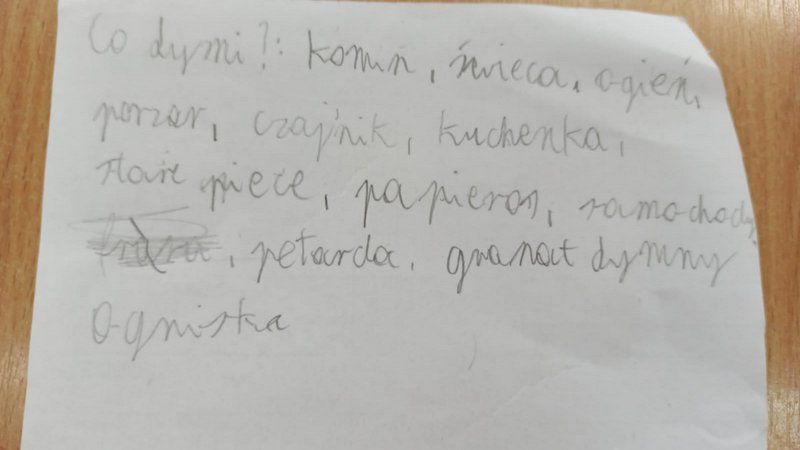 Co dymi?: komin, świeca, ogień,
porzar, czajnik, kuchenka,
stare piece, papieros, samochody,
, petarda, granat dymny
ogniska